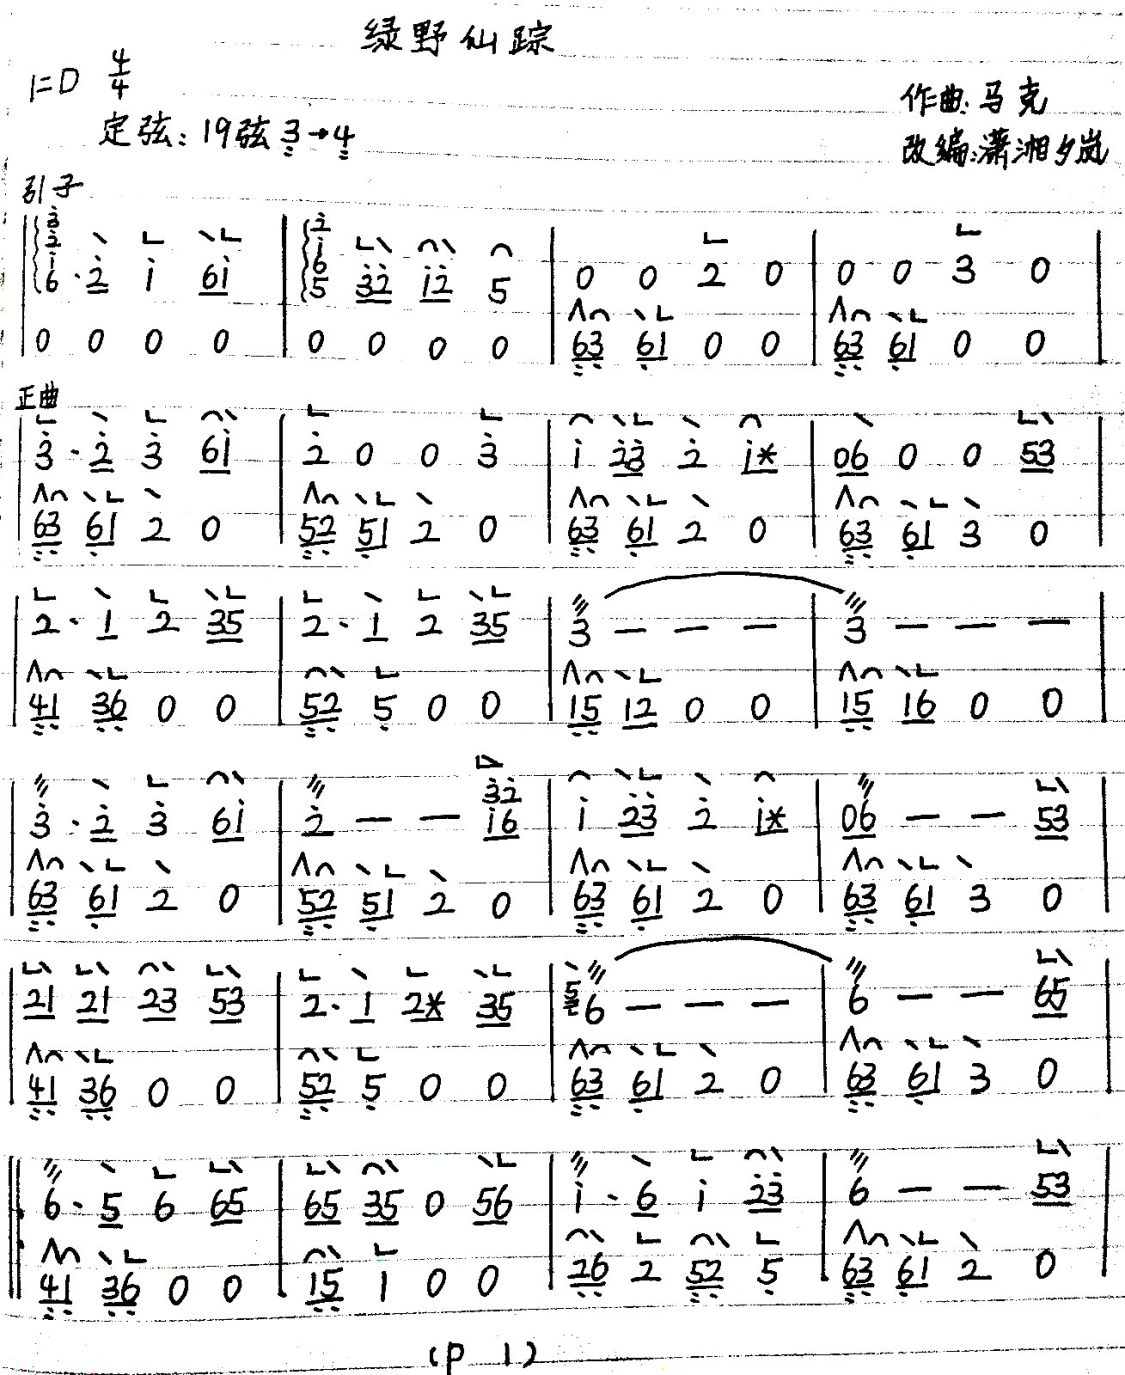 绿野仙踪
1=D 4/4
作曲:马克
定弦:19弦 3→4
改编:潇湘夕岚
引子
3 2 i 6 · 2 i 6i | 2 i 6 5 32 i2 5 | 0 0 2 0 | 0 0 3 0
0 0 0 0 | 0 0 0 0 | 63 61 0 0 | 63 61 0 0
正曲
3 · 2 3 6i | 2 0 0 3 | i 23 2 i* | 06 0 0 53
63 61 2 0 | 52 51 2 0 | 63 61 2 0 | 63 61 3 0
2 · 1 2 35 | 2 · 1 2 35 | 3 — — — | 3 — — —
41 36 0 0 | 52 5 0 0 | 15 12 0 0 | 15 16 0 0
3 · 2 3 6i | 2 — — 32i6 | i 23 2 i* | 06 — — 53
63 61 2 0 | 52 51 2 0 | 63 61 2 0 | 63 61 3 0
21 21 23 53 | 2 · 1 2* 35 | 5 6 — — — | 6 — — 65
41 36 0 0 | 52 5 0 0 | 63 61 2 0 | 63 61 3 0
6 · 5 6 65 | 65 35 0 56 | i · 6 i 23 | 6 — — 53
41 36 0 0 | 15 1 0 0 | 26 2 52 5 | 63 61 2 0
(P 1)